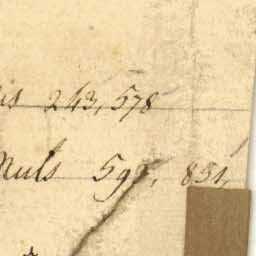 is 243,578
Muls 595, 851,